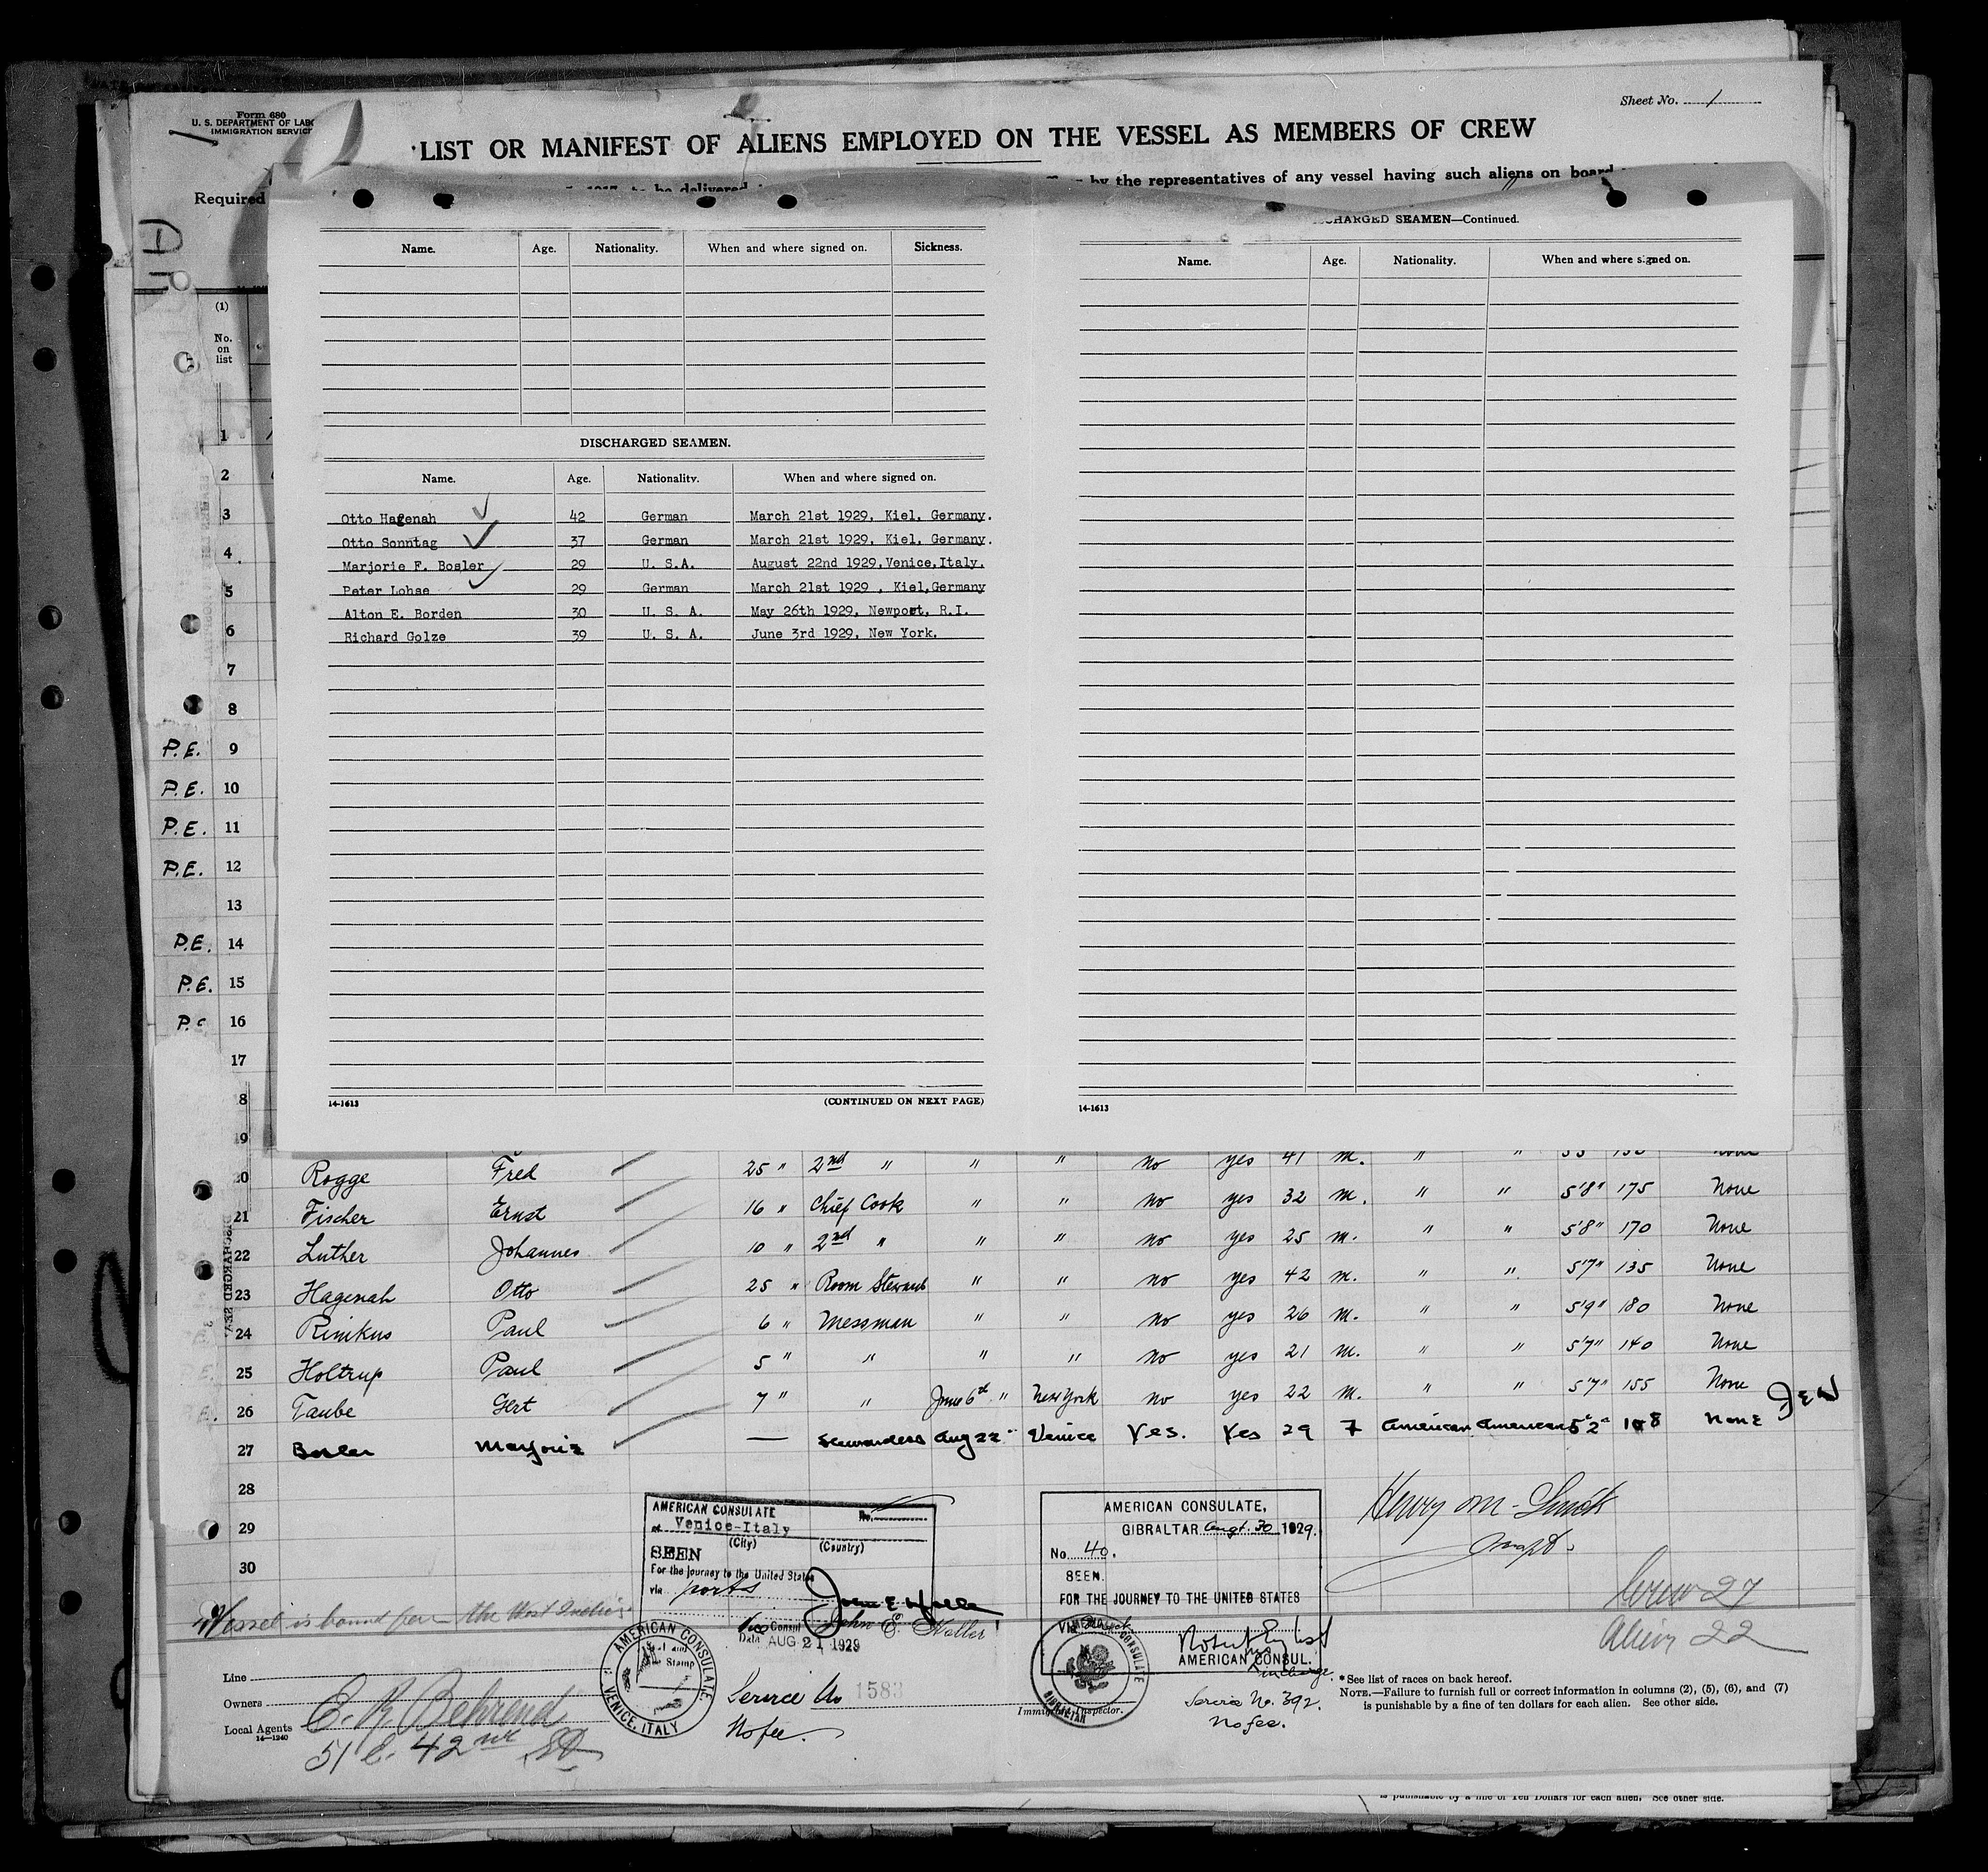 Form 680
U. S. DEPARTMENT OF
IMMIGRATION SERVICE
Sheet No. 1
LIST OR MANIFEST OF ALIENS EMPLOYED ON THE VESSEL AS MEMBERS OF CREW
Required
to be delivered
by the representatives of any vessel having such aliens on board
Name. Age. Nationality. When and where signed on. Sickness.
SEAMEN—Continued.
Name. Age. Nationality. When and where signed on.
(1)
No. on list
DISCHARGED SEAMEN.
Name. Age. Nationality. When and where signed on.
Otto Hagenah 42 German March 21st 1929, Kiel, Germany.
Otto Sonntag 37 German March 21st 1929, Kiel, Germany.
Marjorie F. Bosler 29 U. S.A. August 22nd 1929,Venice,Italy.
Peter Lohse 29 German March 21st 1929 , Kiel,Germany
Alton E. Borden 30 U. S. A. May 26th 1929, Newport, R.I.
Richard Golze 39 U. S. A. June 3rd 1929, New York.
1
2
3
4
5
6
7
8
P.E. 9
P.E. 10
P.E. 11
P.E. 12
13
P.E. 14
P.E. 15
16
17
14-1613 (CONTINUED ON NEXT PAGE)
14-1613
20 Rogge Fred 25 " 2nd " " " no yes 41 m. " "
21 Fischer Ernst 16 " Chief Cook " " no yes 32 m. " " 5'8" 175 None
22 Luther Johannes 10 " 2nd " " " no yes 25 m. " " 5'8" 170 None
23 Hagenah Otto 25 " Room Steward " " no yes 42 m. " " 5'7" 135 None
24 Rinikus Paul 6 " Messman " " no yes 26 m. " " 5'9" 180 None
25 Holtrup Paul 5 " " " " no yes 21 m. " " 5'7" 140 None
26 Taube Gert 7 " " June 6th " New York no yes 22 m. " " 5'7" 155 None
27 Bosler Marjorie — Stewardess Aug 22 " Venice Yes. Yes 29 F American American 5'2" 108 None
28
29
30
AMERICAN CONSULATE
at Venice-Italy
(City) (Country)
No.
SEEN
For the journey to the United States
via ports
Vice Consul
Date AUG 21 1929
AMERICAN CONSULATE
VENICE, ITALY
Stamp
Service No 1583
No fee.
AMERICAN CONSULATE,
GIBRALTAR Augt. 30 1929.
No. 40.
SEEN.
FOR THE JOURNEY TO THE UNITED STATES
VIA
AMERICAN CONSUL.
in charge.
AMERICAN CONSULATE
GIBRALTAR
Service No. 392.
No fee.
Crew 27
Alien 22
Vessel is bound for the West Indies
Line
Owners
Local Agents
E. R. Behrend
51 E. 42nd St
14—1240
Immigrant Inspector.
*See list of races on back hereof.
NOTE.—Failure to furnish full or correct information in columns (2), (5), (6), and (7)
is punishable by a fine of ten dollars for each alien. See other side.
is punishable by a fine of Ten Dollars for each alien. See other side.